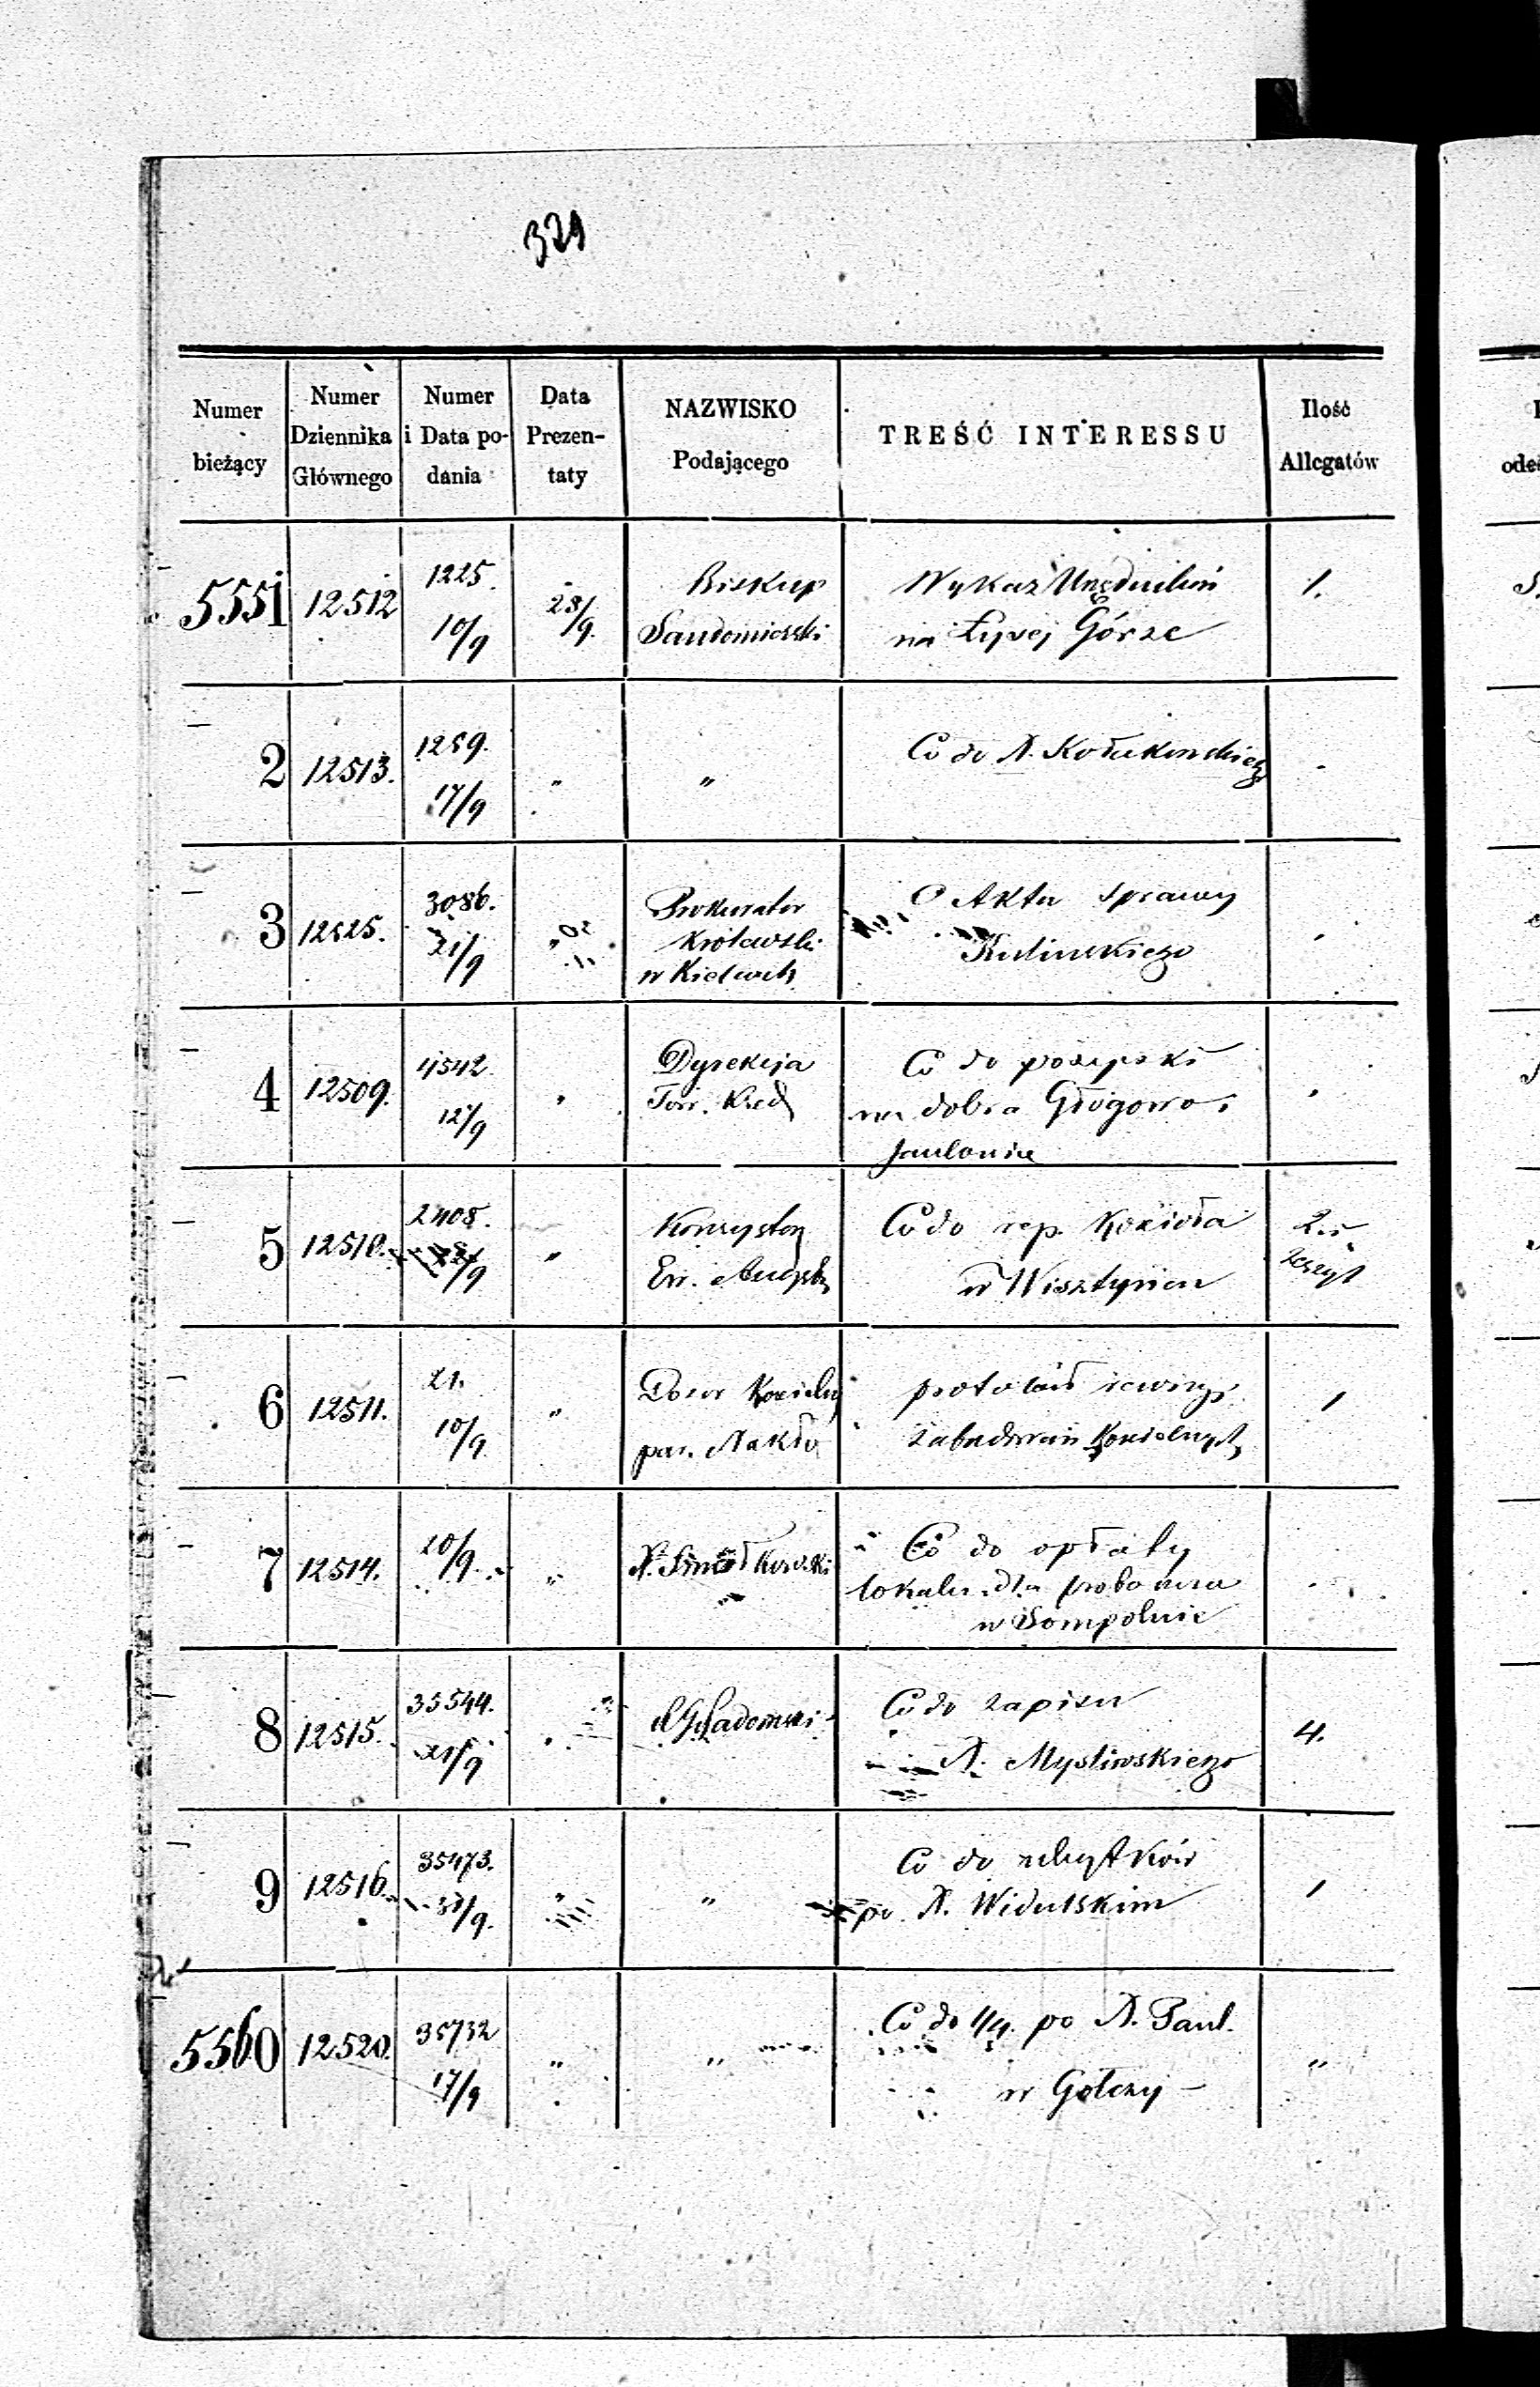 379
Numer bieżący
Numer Dziennika Głównego
Numer i Data podania
Data Prezentaty
NAZWISKO Podającego
TREŚĆ INTERESSU
Ilość Allegatów
5551 12512 1225. 10/9 28/9. Biskup Sandomierski Wykaz Urzędników na Łysej Górze 1.
2 12513. 1289. 17/9 " " Co do X.
3 12525. 3086. 21/9 " Prokurator Królewski w Kielcach O Akta sprawy
4 12509. 4542. 12/9 " Dyrekcja Tow. Kred Co do pożyczki na dobra Głogowo i
5 12510. 2408. /9 " Konsystorz Ew. Augsb Co do rep. Kościoła w Wisztyńcu 2. zeszyt
6 12511. 21. 10/9 " Dozor Kościelny par. Nakło protokół rewizyi zabudowań Kościelnych 1
7 12514. 20/9. " X. Smółkowski Co do opłaty lokalu dla proboszcza w Sompolnie
8 12515. 35544. 21/9 " Co do zapisu X. Mysliwskiego 4.
9 12516. 35473. /9. " " Co do zabytków po X. Widulskim 1
5560 12520. 35732 17/9 " " Co do 1/4. po X. Paul. w Gołczy "